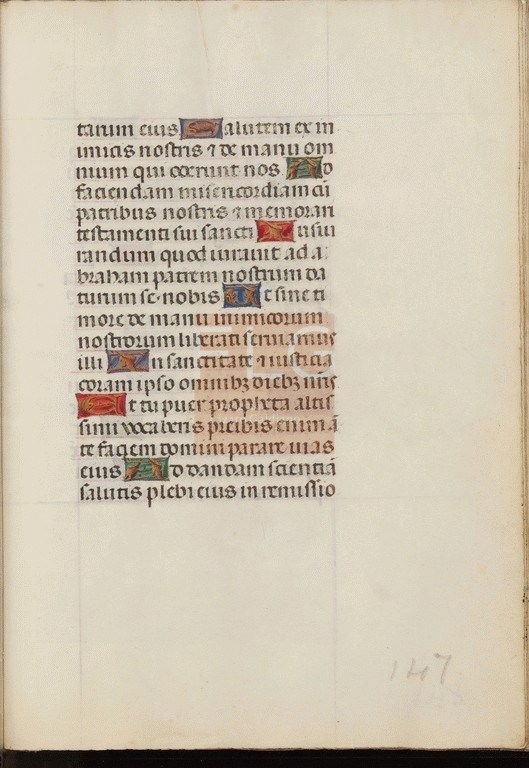 tarum eius Salutem ex in
imicis nostris ⁊ de manu om
nium qui oderunt nos Ad
faciendam misericordiam cū
patribus nostris ⁊ memorari
testamenti sui sancti Iusiu
randum quod iurauit ad a
braham patrem nostrum da
turum se nobis Ut sine ti
more de manu inimicorum
nostrorum liberati seruiamus
illi In sanctitate ⁊ iusticia
coram ipso omnibꝫ diebꝫ nr̄is
Et tu puer propheta altis
simi vocaberis preibis enim ā
te faciem domini parare uias
eius Ad dandam scientiā
salutis plebi eius in remissio
147